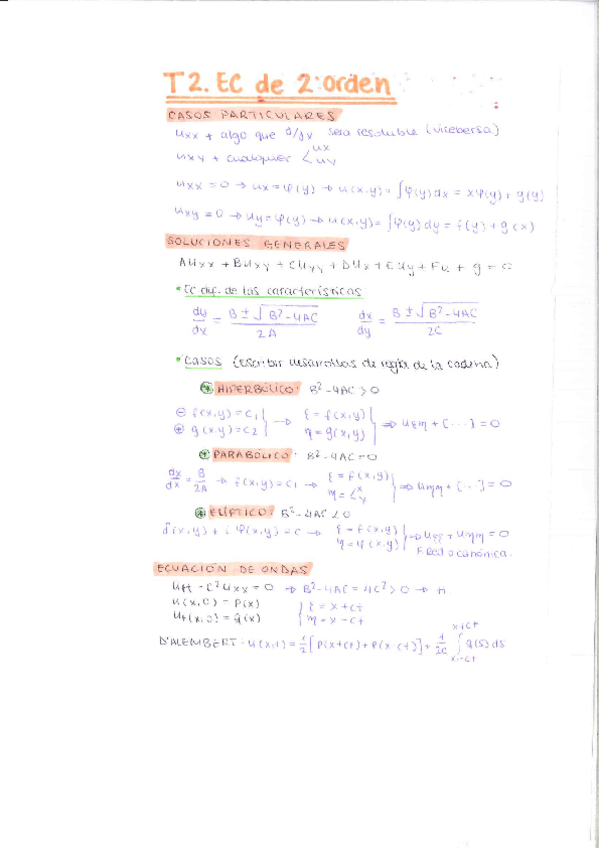 T2. EC de 2º orden
CASOS PARTICULARES
uxx + algo que d/dx será resoluble (viceversa)
uxy + cualquier < ux uy
uxx = 0 → ux = φ(y) → u(x,y) = ∫φ(y)dx = xφ(y) + g(y)
uxy = 0 → uy = φ(y) → u(x,y) = ∫φ(y)dy = f(y) + g(x)
SOLUCIONES GENERALES
Auxx + Buxy + Cuyy + Dux + Euy + Fu + g = 0
• Ec dif. de las características
dy/dx = (B ± √(B² - 4AC)) / 2A    dx/dy = (B ± √(B² - 4AC)) / 2C
• Casos (escribir desarrollos de regla de la cadena)
HIPERBÓLICO: B² - 4AC > 0
⊖ f(x,y) = C1 } → ξ = f(x,y) } ⇒ uξη + [...] = 0
⊕ g(x,y) = C2 } → η = g(x,y) }
PARABÓLICO: B² - 4AC = 0
dx/dx = B/2A → f(x,y) = C1 → { ξ = f(x,y) η = < x y } ⇒ uηη + [...] = 0
ELÍPTICO: B² - 4AC < 0
f(x,y) + i φ(x,y) = C → { ξ = f(x,y) η = φ(x,y) } ⇒ uξξ + uηη = 0
F. Red o canónica.
ECUACIÓN DE ONDAS
utt - C²uxx = 0 → B² - 4AC = 4C² > 0 → H.
u(x,0) = p(x) { ξ = x + ct
ut(x,0) = q(x) { η = x - ct
D'ALEMBERT: u(x,t) = 1/2 [p(x+ct) + p(x-ct)] + 1/2C ∫ x-ct x+ct q(s) ds